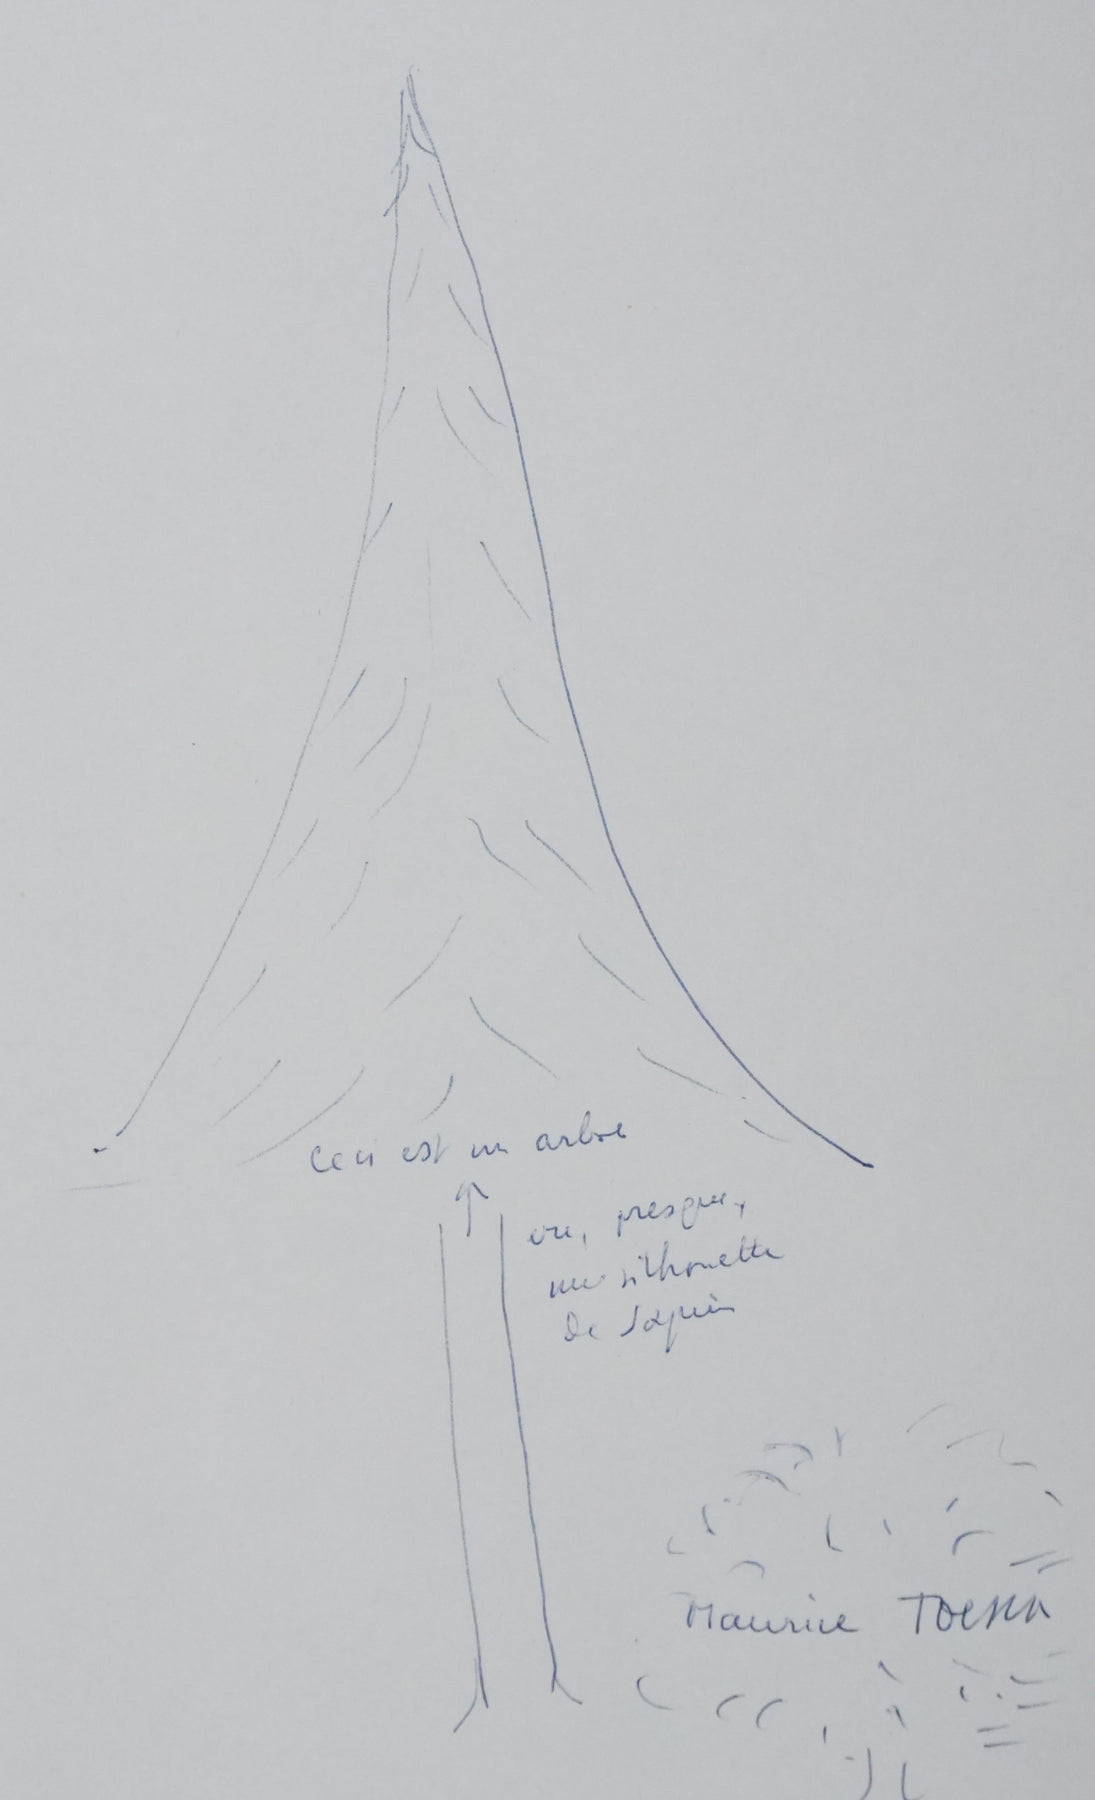 Ceci est un arbre
ou, presque,
une silhouette
de sapin
Maurice Toesca